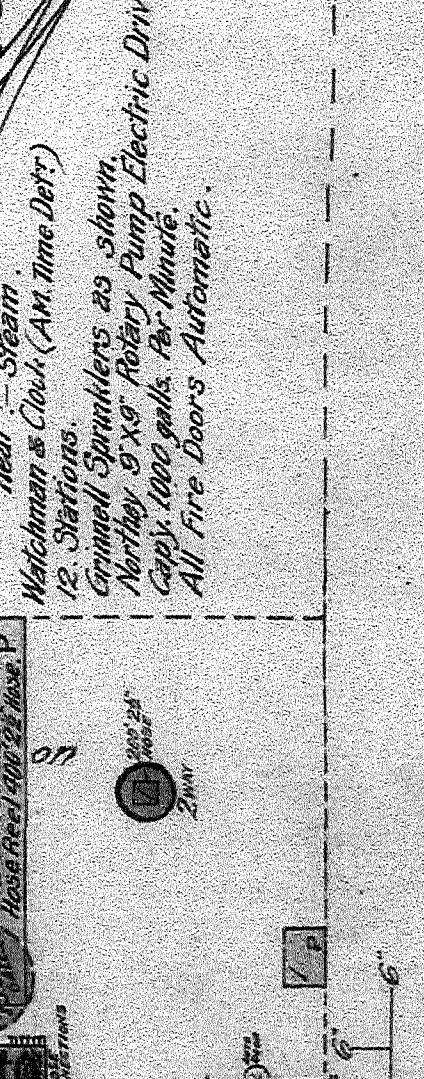 Heat :- Steam.
Watchman & Clock (Am. Time Detr)
12. Stations.
Grinnell Sprinklers as shown.
Northey 9"x9" Rotary Pump Electric Driv
Capy. 1000 galls. Per Minute.
All Fire Doors Automatic.
Hose Reel 400' 2½" Hose. P
400' 2½"
HOSE
2 WAY
/ P
6"
6"